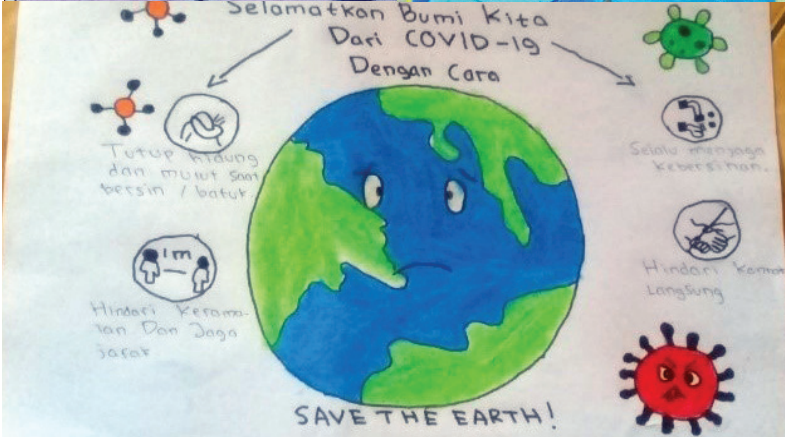 Selamatkan Bumi Kita
Dari COVID-19
Dengan Cara
Tutup hidung
dan mulut saat
bersin / batuk
1m
Hindari kerama-
ian Dan Jaga
jarak
Selalu menjaga
kebersihan.
Hindari kontak
Langsung
SAVE THE EARTH!